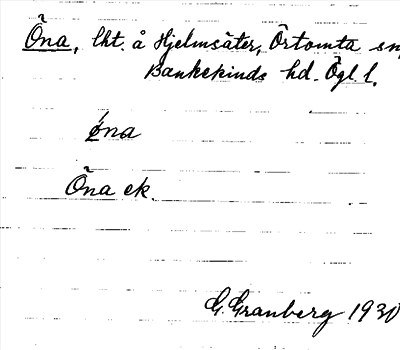 Öna, lht. å Hjelmsäter, Örtomta sn,
Bankekinds hd. Ögl. l.
øna
Öna ek.
G. Granberg 1930